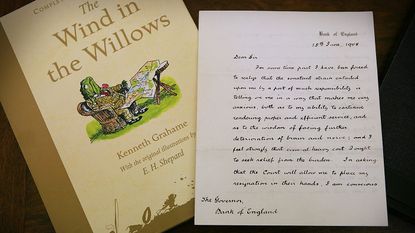 COMPLETE
The
Wind in
the Willows
Kenneth Grahame
With the original illustrations by
E. H. Shepard
Bank of England
15th June, 1908
Dear Sir
For some time past I have been forced
to realize that the constant strain entailed
upon me by a post of much responsibility is
telling on me in a way that makes me very
anxious, both as to my ability to continue
rendering proper and efficient service, and
as to the wisdom of facing further
deterioration of brain and nerve; and I
feel strongly that even at heavy cost I ought
to seek relief from the burden. In asking
that the Court will allow me to place my
resignation in their hands, I am conscious
The Governor,
Bank of England